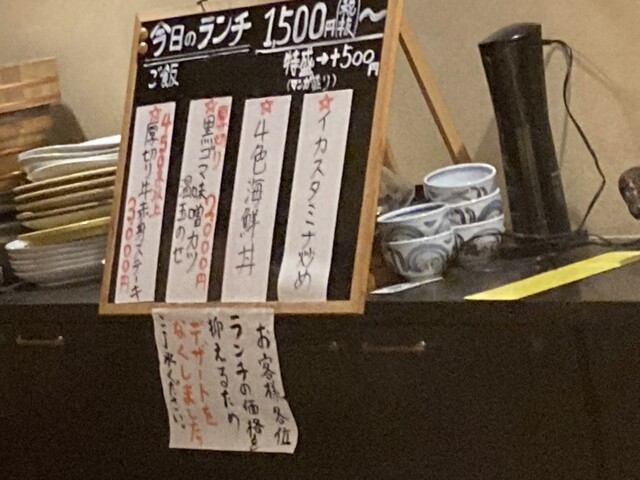 今日のランチ 1500円税抜〜
ご飯 特盛→+500円
(マンガ盛り)
☆イカスタミナ炒め
☆4色海鮮丼
☆厚切り
黒ゴマ味噌カツ
温玉のせ 2000円
☆450g以上
厚切り牛赤身ステーキ
3000円
お客様各位
ランチの価格を
抑えるため
デザートを
なくしました。
ご了承ください。